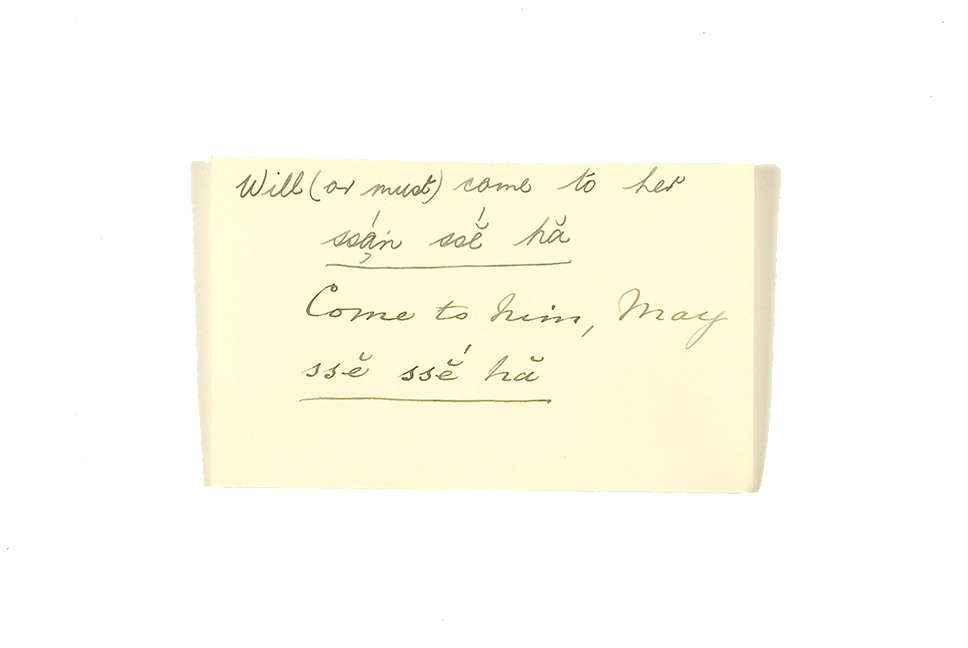 Will (or must) come to her
ssą́n ssĕ́ hă
Come to him, May
ssĕ ssĕ́ hă